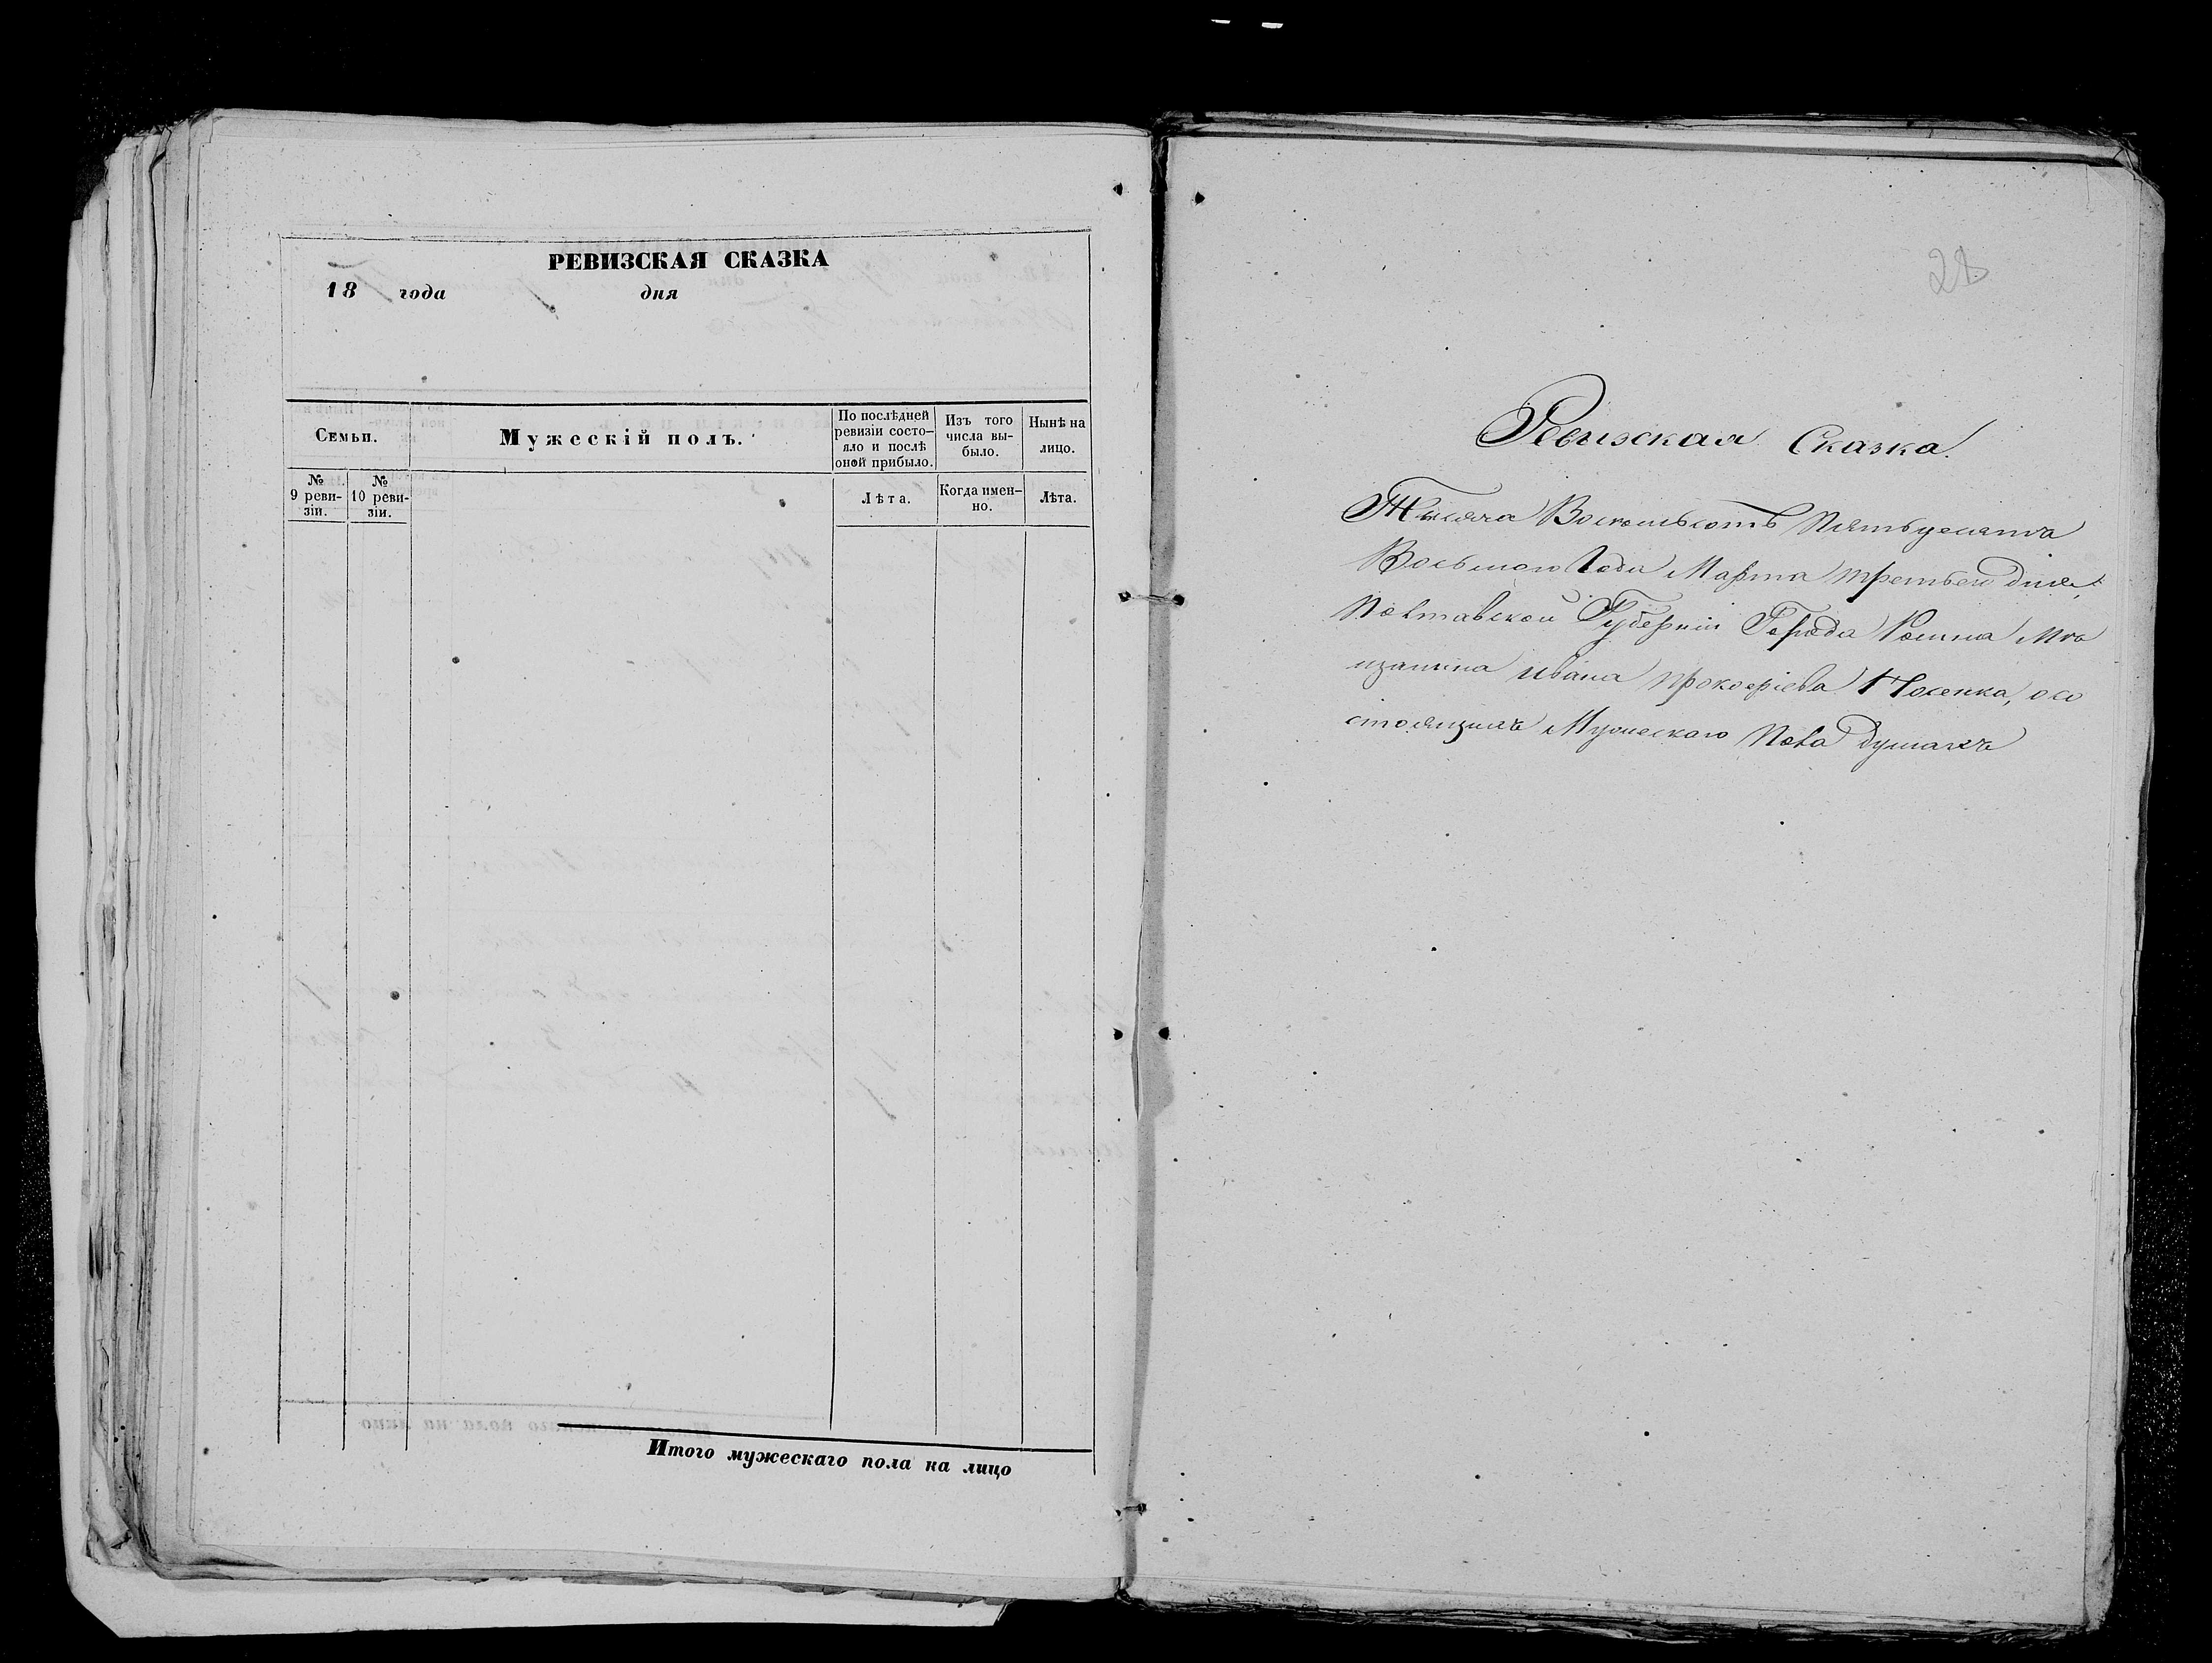 РЕВИЗСКАЯ СКАЗКА
18 года дня
Семьи.
Мужескій полъ.
По послѣдней ревизіи состо-
яло и послѣ оной прибыло.
Изъ того числа вы-
было.
Нынѣ на лицо.
№ 9 реви-
зіи.
№ 10 реви-
зіи.
Лѣта.
Когда имен-
но.
Лѣта.
Итого мужескаго пола на лицо
28
Ревизская Сказка.
Тысяча Восемьсотъ Пятьдесятъ
Восьмого Года Марта третьего дня,
Полтавской Губерніи Города Ромна Мѣ
щанина Ивана Прокофіева Носенка, осо
стоящихъ Мужеского Пола душахъ